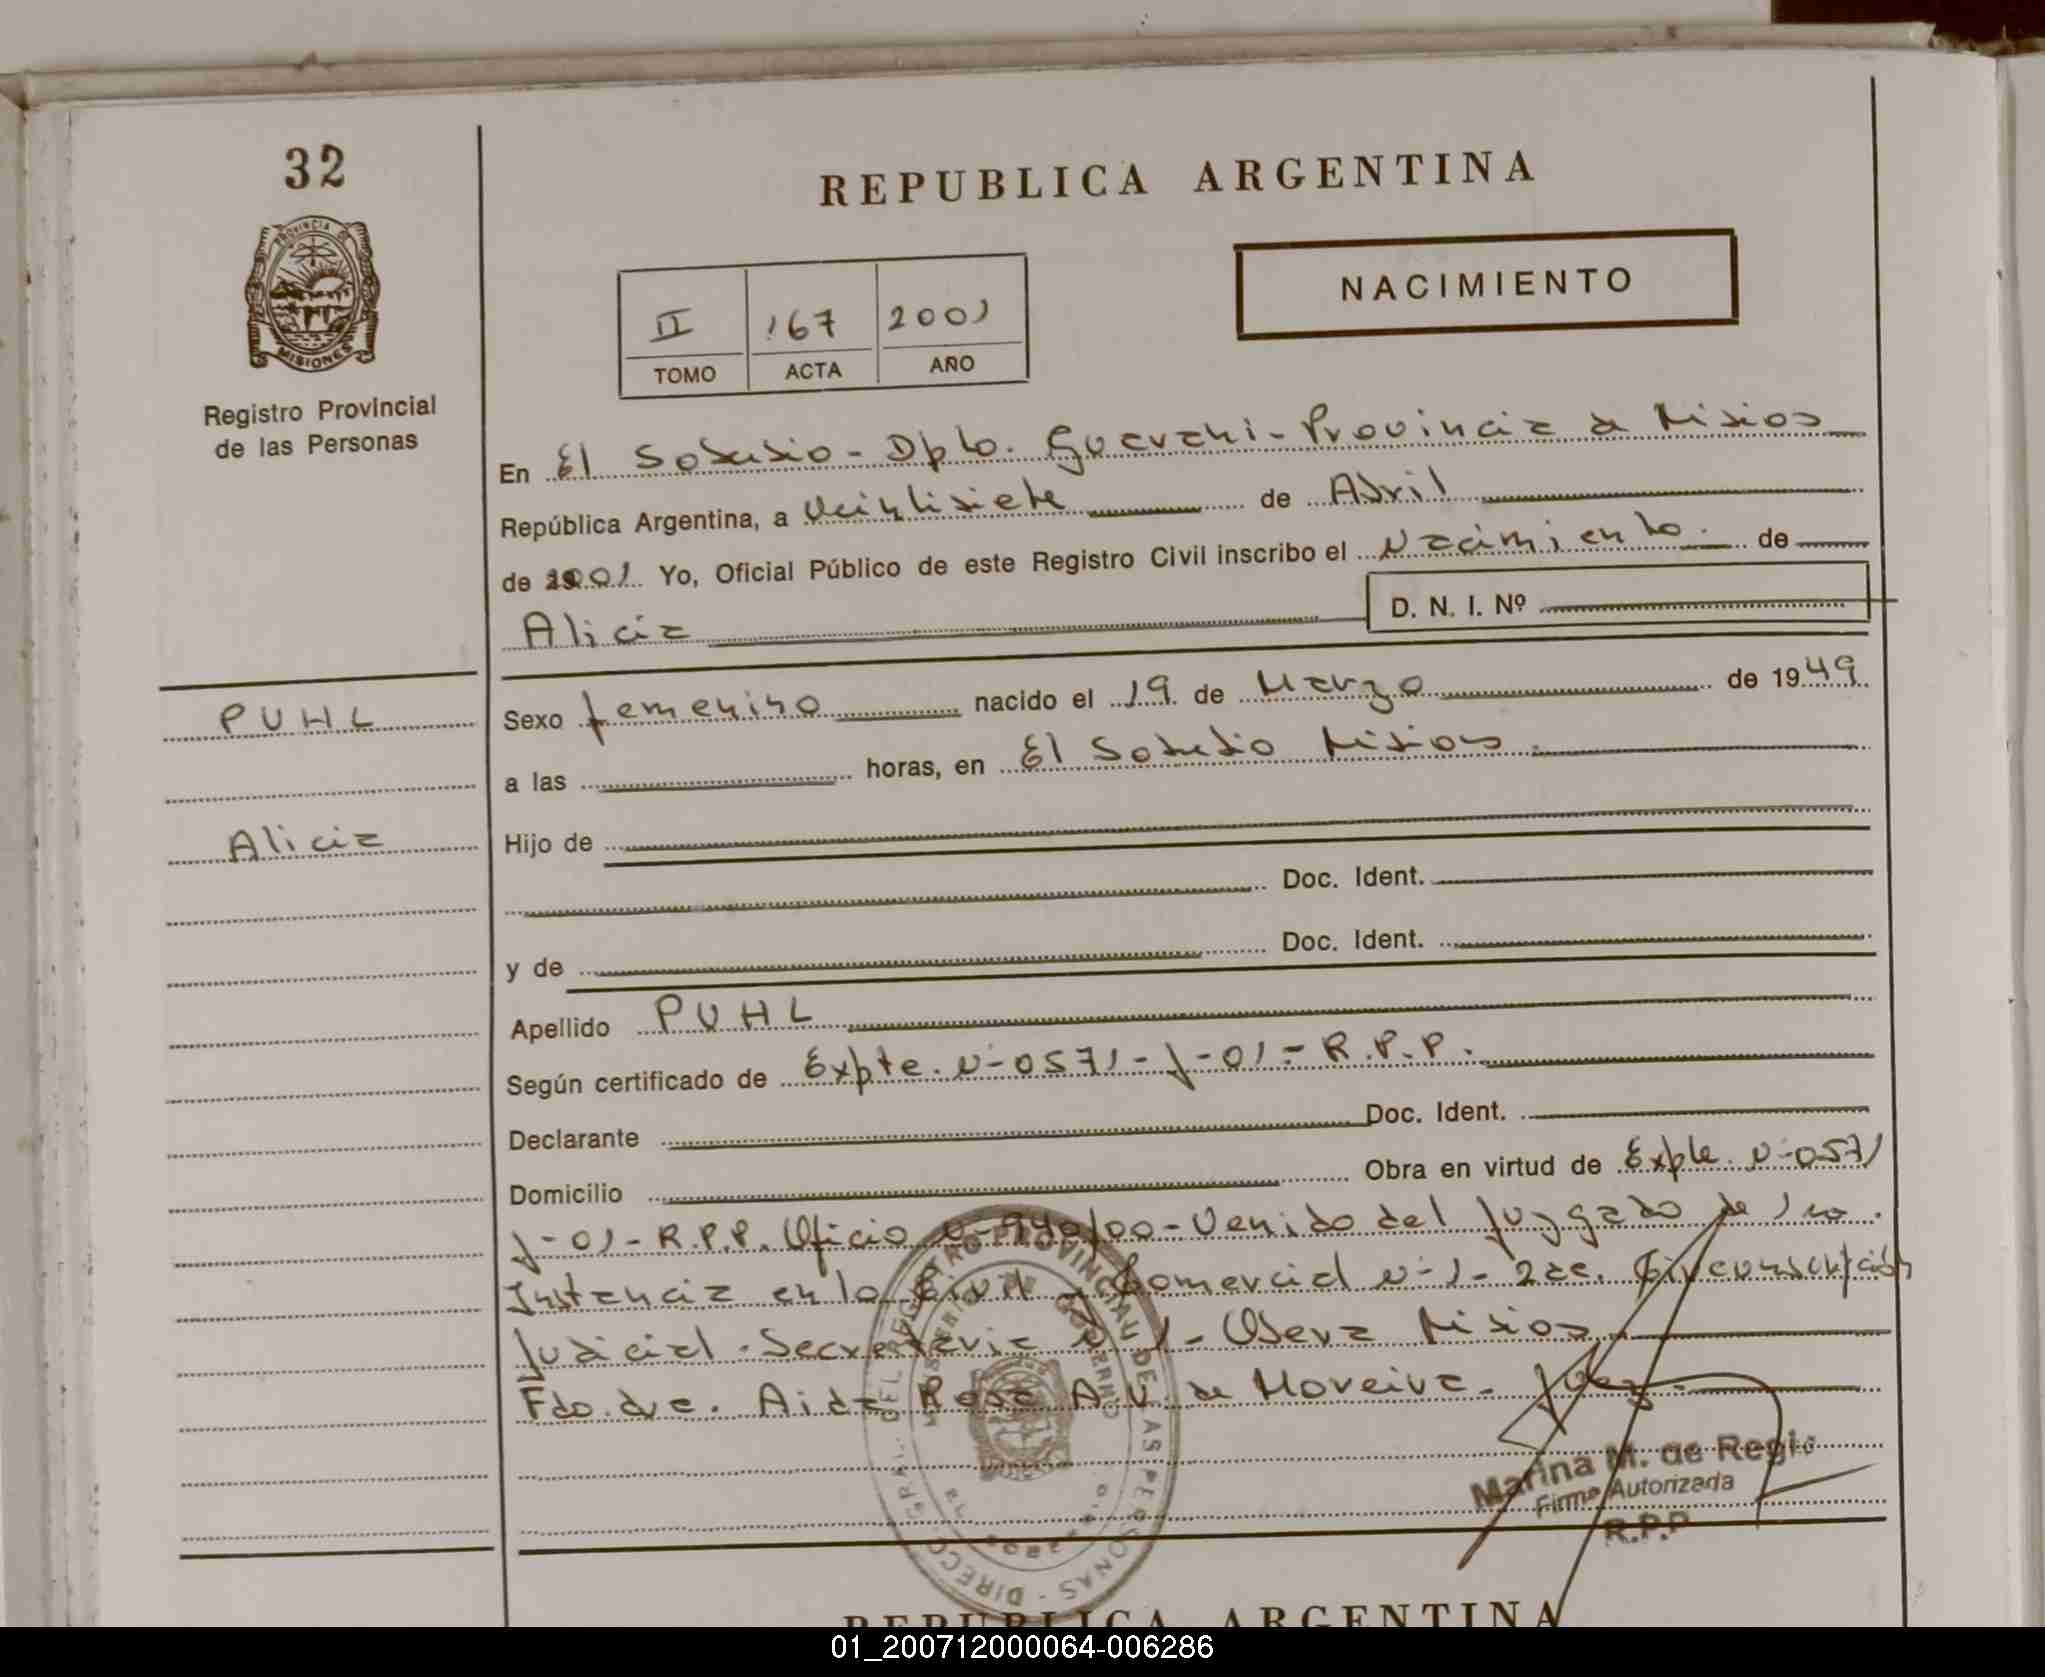 32
REPUBLICA ARGENTINA
PROVINCIA DE
MISIONES
NACIMIENTO
II 167 2001
TOMO ACTA AÑO
Registro Provincial
de las Personas
En El Soberbio - Dpto. Guarani - Provincia de Misiones
República Argentina, a Veintisiete de Abril
de 2001 Yo, Oficial Público de este Registro Civil inscribo el Nacimiento de
Alicia D. N. I. Nº
PUHL
Sexo femenino nacido el 19 de Marzo de 1949
a las horas, en El Soberbio Misiones
Alicia
Hijo de
Doc. Ident.
y de Doc. Ident.
Apellido PUHL
Según certificado de Expte. Nº 0571 - J - 01 - R.P.P.
Declarante Doc. Ident.
Domicilio Obra en virtud de Expte. Nº 0571
J - 01 - R.P.P. Oficio Nº 940/00 - Venido del Juzgado de 1ro.
Instancia en lo Civil y Comercial Nº 1 - 2da. Circunscripción
Judicial - Secretaria Nº 1 - Obera Misiones
Fdo. dra. Aida Rosa A.V. de Moreira - Juez
Marina M. de Regis
Firma Autorizada
R.P.P
REPUBLICA ARGENTINA
01_200712000064-006286